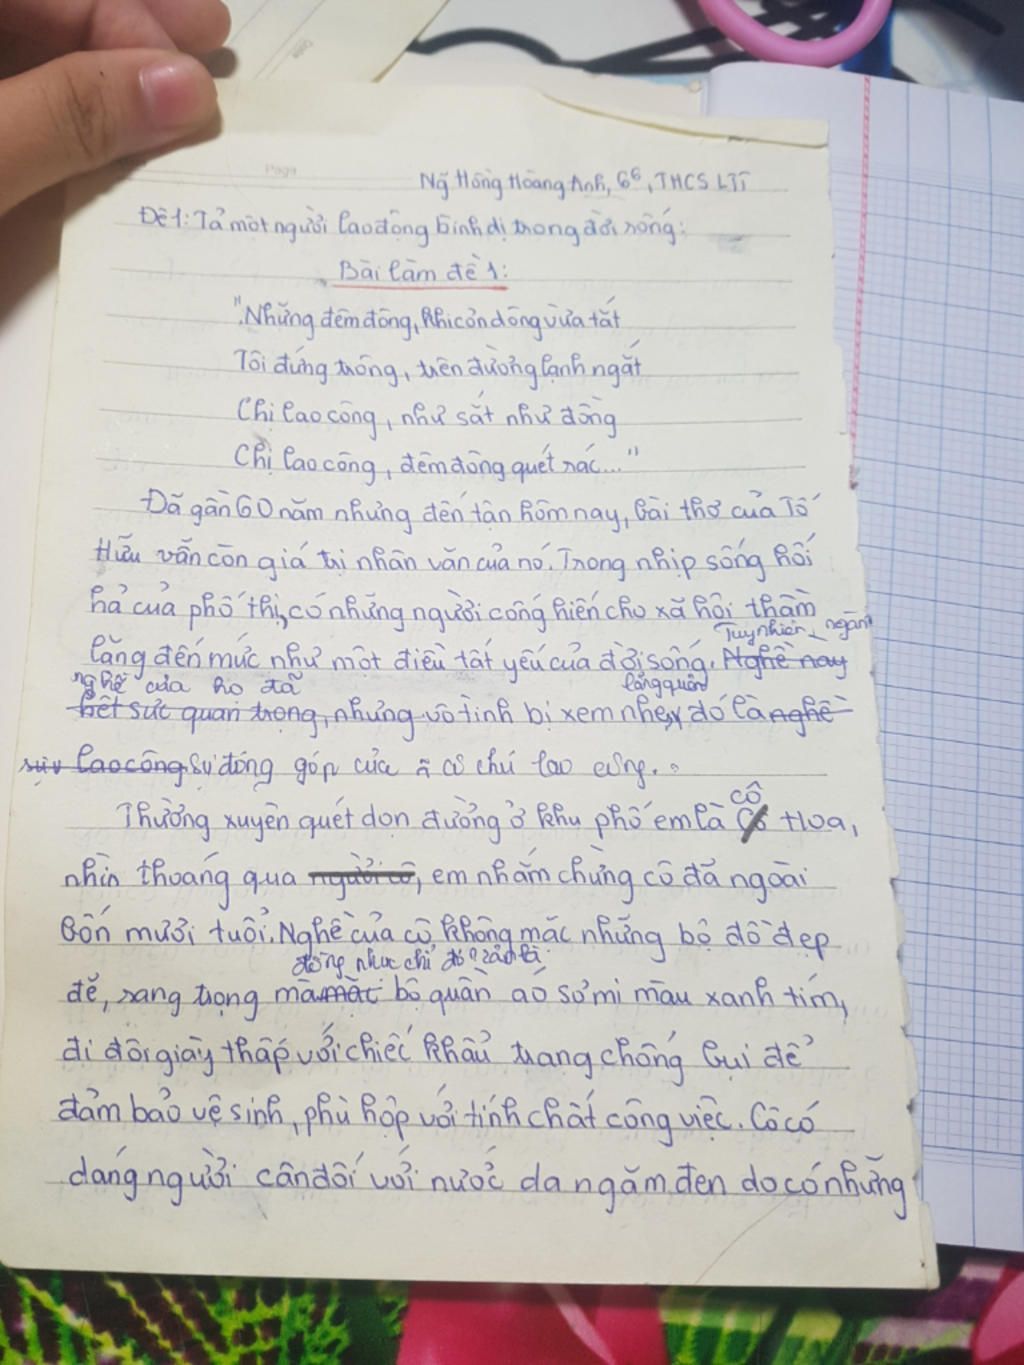 Page
Ng Hồng Hoàng Anh, 6⁶, THCS LTT
Đề 1: Tả một người lao động bình dị trong đời sống:
Bài làm đề 1:
"Những đêm đông, khi cơn dông vừa tắt
Tôi đứng trông, trên đường lạnh ngắt
Chị lao công, như sắt như đồng
Chị lao công, đêm đông quét rác..."
Đã gần 60 năm nhưng đến tận hôm nay, bài thơ của Tố
Hữu vẫn còn giá trị nhân văn của nó. Trong nhịp sống hối
hả của phố thị, có những người cống hiến cho xã hội thầm
Tuy nhiên, ngành
lặng đến mức như một điều tất yếu của đời sống. Nghề này
nghề của họ đã lãng quên
hết sức quan trọng, nhưng vô tình bị xem nhẹ, đó là nghề
lao công. Sự đóng góp của cô chú lao công.
cô
Thường xuyên quét dọn đường ở khu phố em là Hoa,
nhìn thoáng qua người cô, em nhắm chừng cô đã ngoài
bốn mươi tuổi. Nghề của cô không mặc những bộ đồ đẹp
đồng phục chỉ đơn giản là
đẽ, sang trọng mà mặc bộ quần áo sơ mi màu xanh tím,
đi đôi giày thấp với chiếc khẩu trang chống bụi để
đảm bảo vệ sinh, phù hợp với tính chất công việc. Cô có
dáng người cân đối với nước da ngăm đen do có những